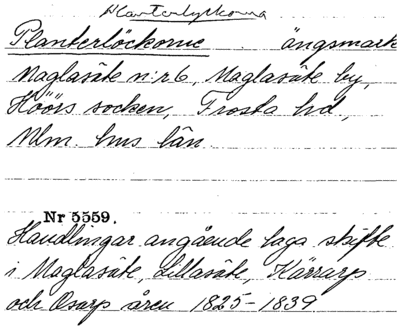 Planterlyckorna
Planterlöckorne ängsmark
Maglasäte n:r 6, Maglasäte by,
Höörs socken, Frosta hd,
Mlm. hus län
Nr 5559.
Handlingar angående laga skifte
i Maglasäte, Lillasäte, Kärrarp
och Osarp åren 1825-1839